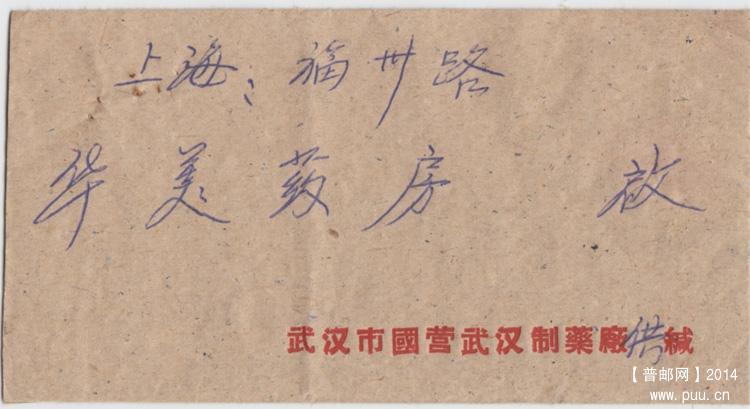 上海：福州路
华美药房 啟
武汉市國营武汉制藥廠供緘
【普邮网】2014
www.puu.cn